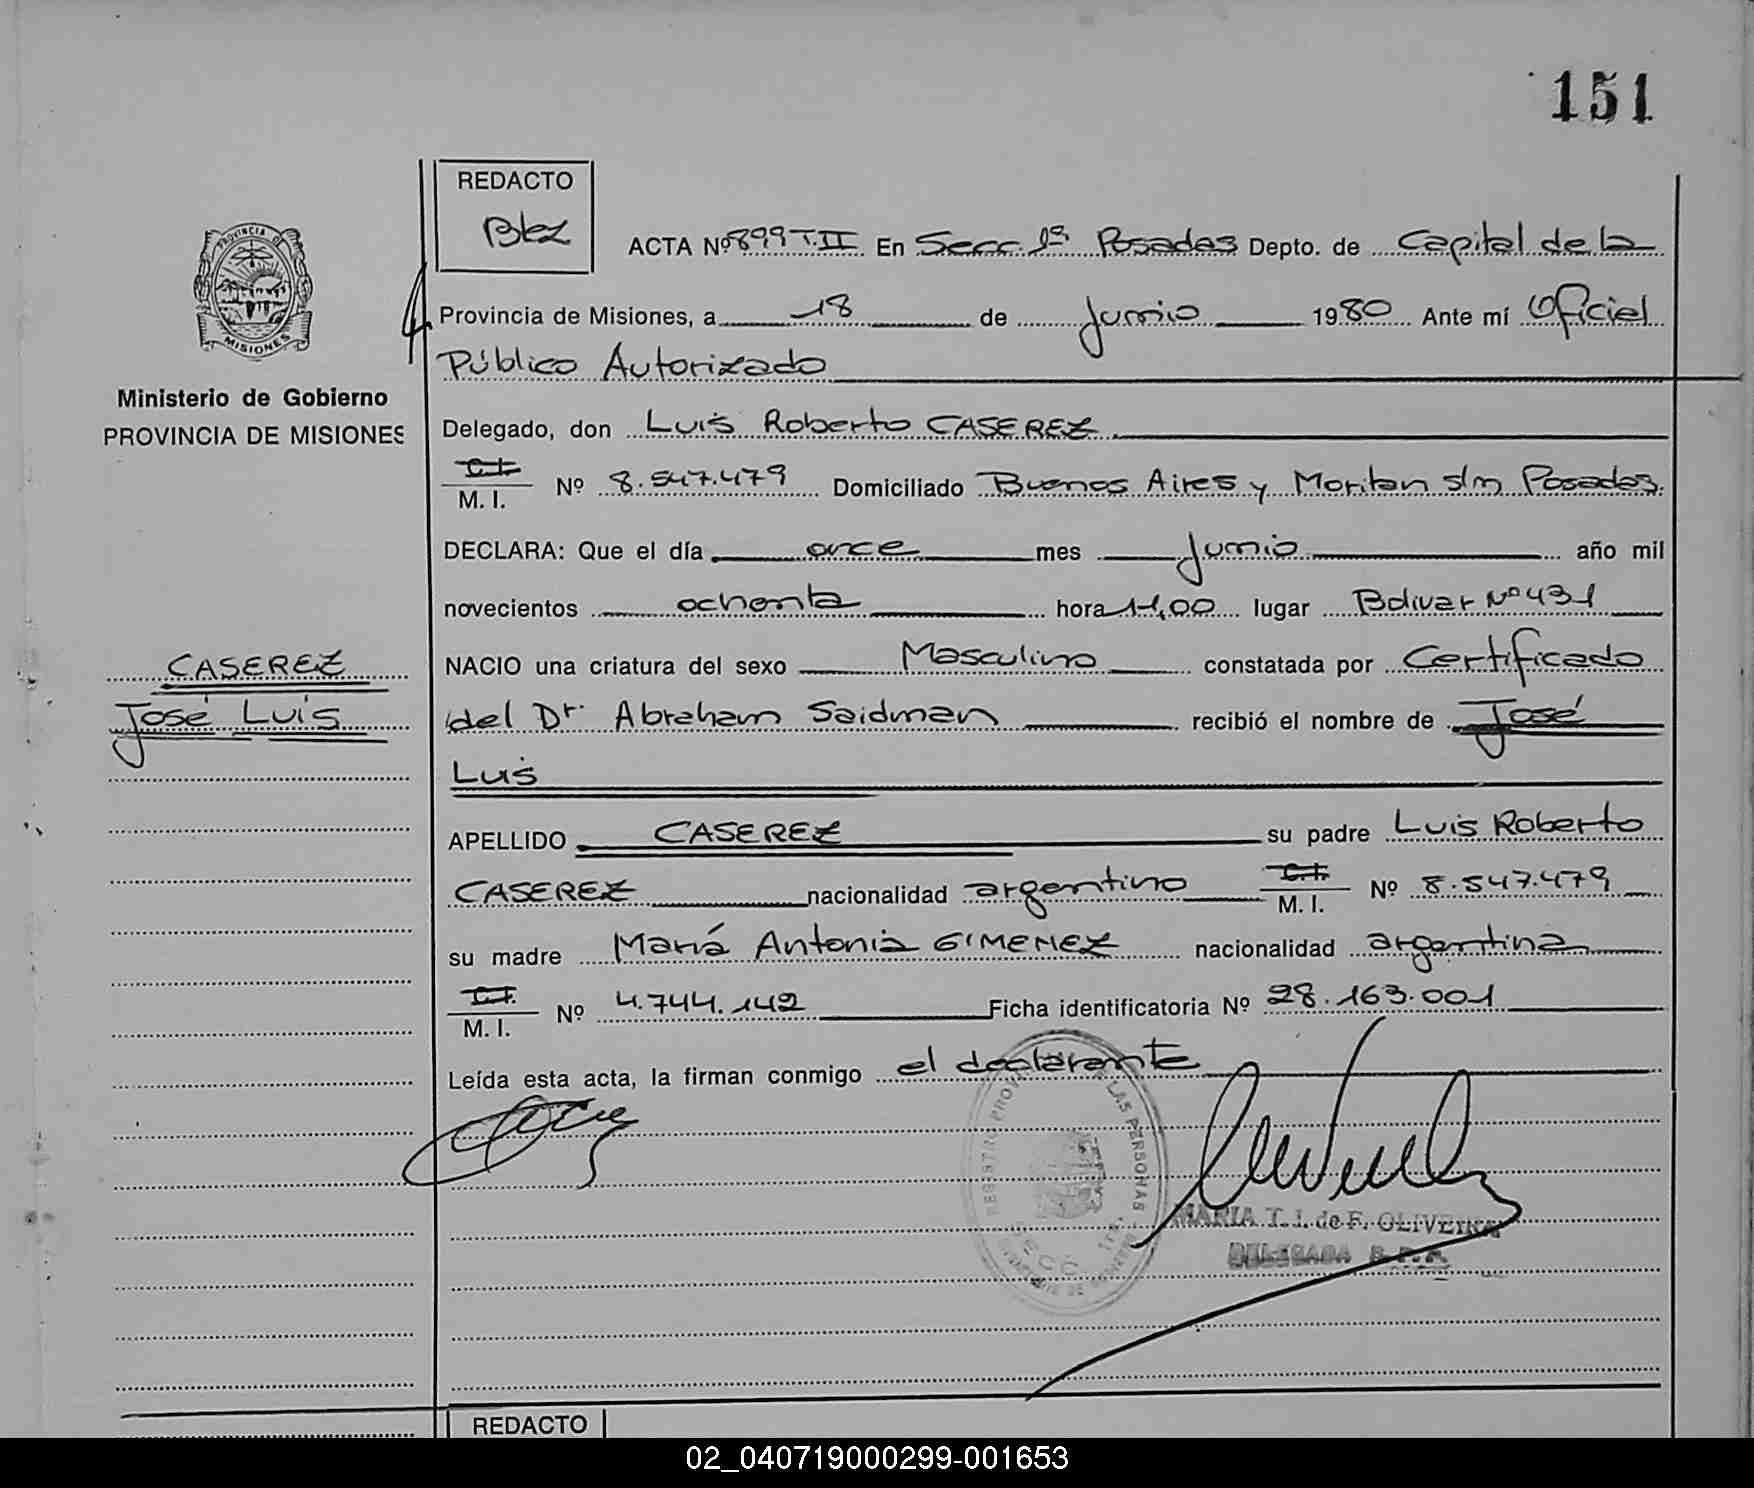 151
REDACTO
Btez
ACTA Nº 899 T.II En Secc. 1ª Posadas Depto. de Capital de la
Provincia de Misiones, a 18 de Junio 1980 Ante mí Oficial
Público Autorizado
PROVINCIA DE
MISIONES
Ministerio de Gobierno
PROVINCIA DE MISIONES
Delegado, don Luis Roberto CASEREZ
C.I.
M. I. Nº 8.547.479 Domiciliado Buenos Aires y Moritan s/n Posadas.
DECLARA: Que el día once mes Junio año mil
novecientos ochenta hora 11,00 lugar Bolivar Nº 431
CASEREZ
José Luis
NACIO una criatura del sexo Masculino constatada por Certificado
del Dr. Abraham Saidman recibió el nombre de José
Luis
APELLIDO CASEREZ su padre Luis Roberto
CASEREZ nacionalidad argentino C.I. M. I. Nº 8.547.479
su madre María Antonia GIMENEZ nacionalidad argentina
C.I.
M. I. Nº 4.744.142 Ficha identificatoria Nº 28.163.001
Leída esta acta, la firman conmigo el declarante
REGISTRO PROV LAS PERSONAS
SECC 1ra.
MARIA T. I. de F. OLIVEIRA
DELEGADA
REDACTO
02_040719000299-001653